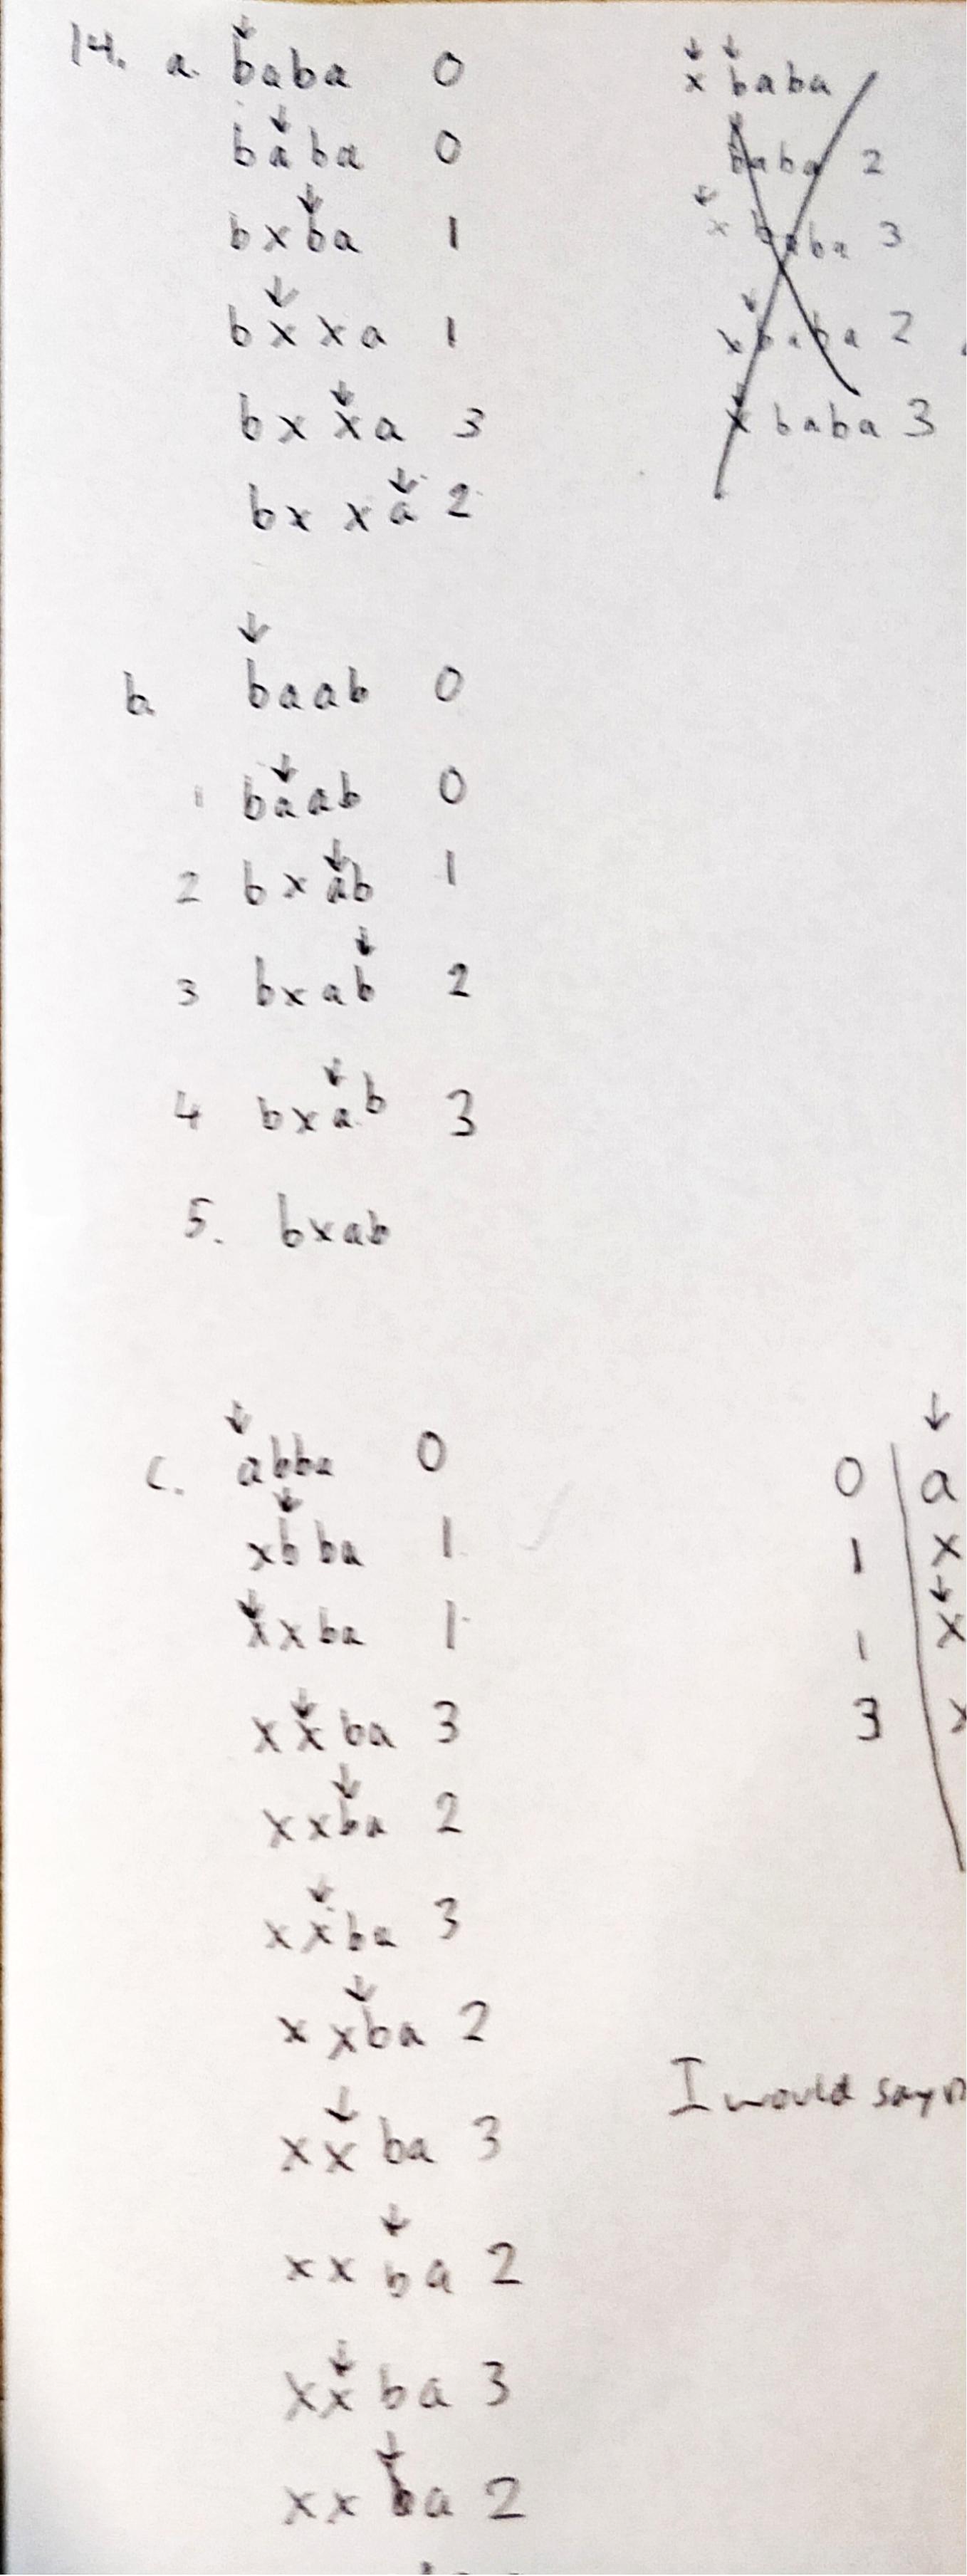 14. a. baba 0
baba 0
bxba 1
bxxa 1
bxxa 3
bxxa 2
xbaba
baba 2
xbaba 3
xbaba 2
xbaba 3
b. baab 0
1 baab 0
2 bxab 1
3 bxab 2
4 bxab 3
5. bxab
c. abba 0
xbba 1
xxba 1
xxba 3
xxba 2
xxba 3
xxba 2
xxba 3
xxba 2
xxba 3
xxba 2
0 a
1 x
1 x
3 x
I would say